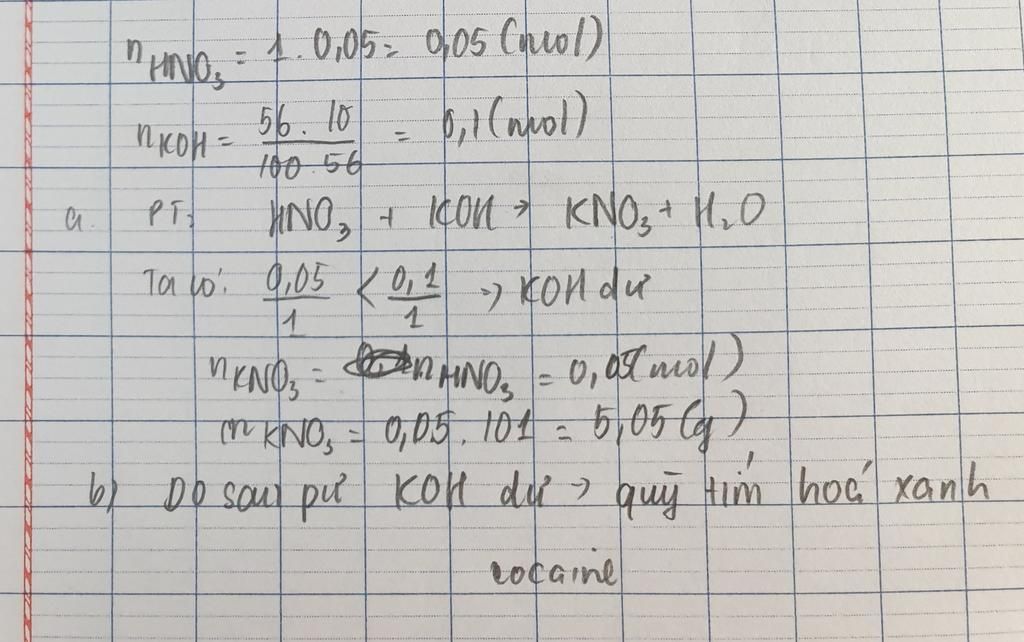 nHNO₃ = 1 . 0,05 = 0,05 (mol)
nKOH = 56 . 10 / 100 . 56 = 0,1 (mol)
a. PT: HNO₃ + KOH → KNO₃ + H₂O
Ta có: 0,05/1 < 0,1/1 → KOH dư
nKNO₃ = nHNO₃ = 0,05 (mol)
mKNO₃ = 0,05 . 101 = 5,05 (g)
b) Do sau pư KOH dư → quỳ tím hoá xanh
cocaine